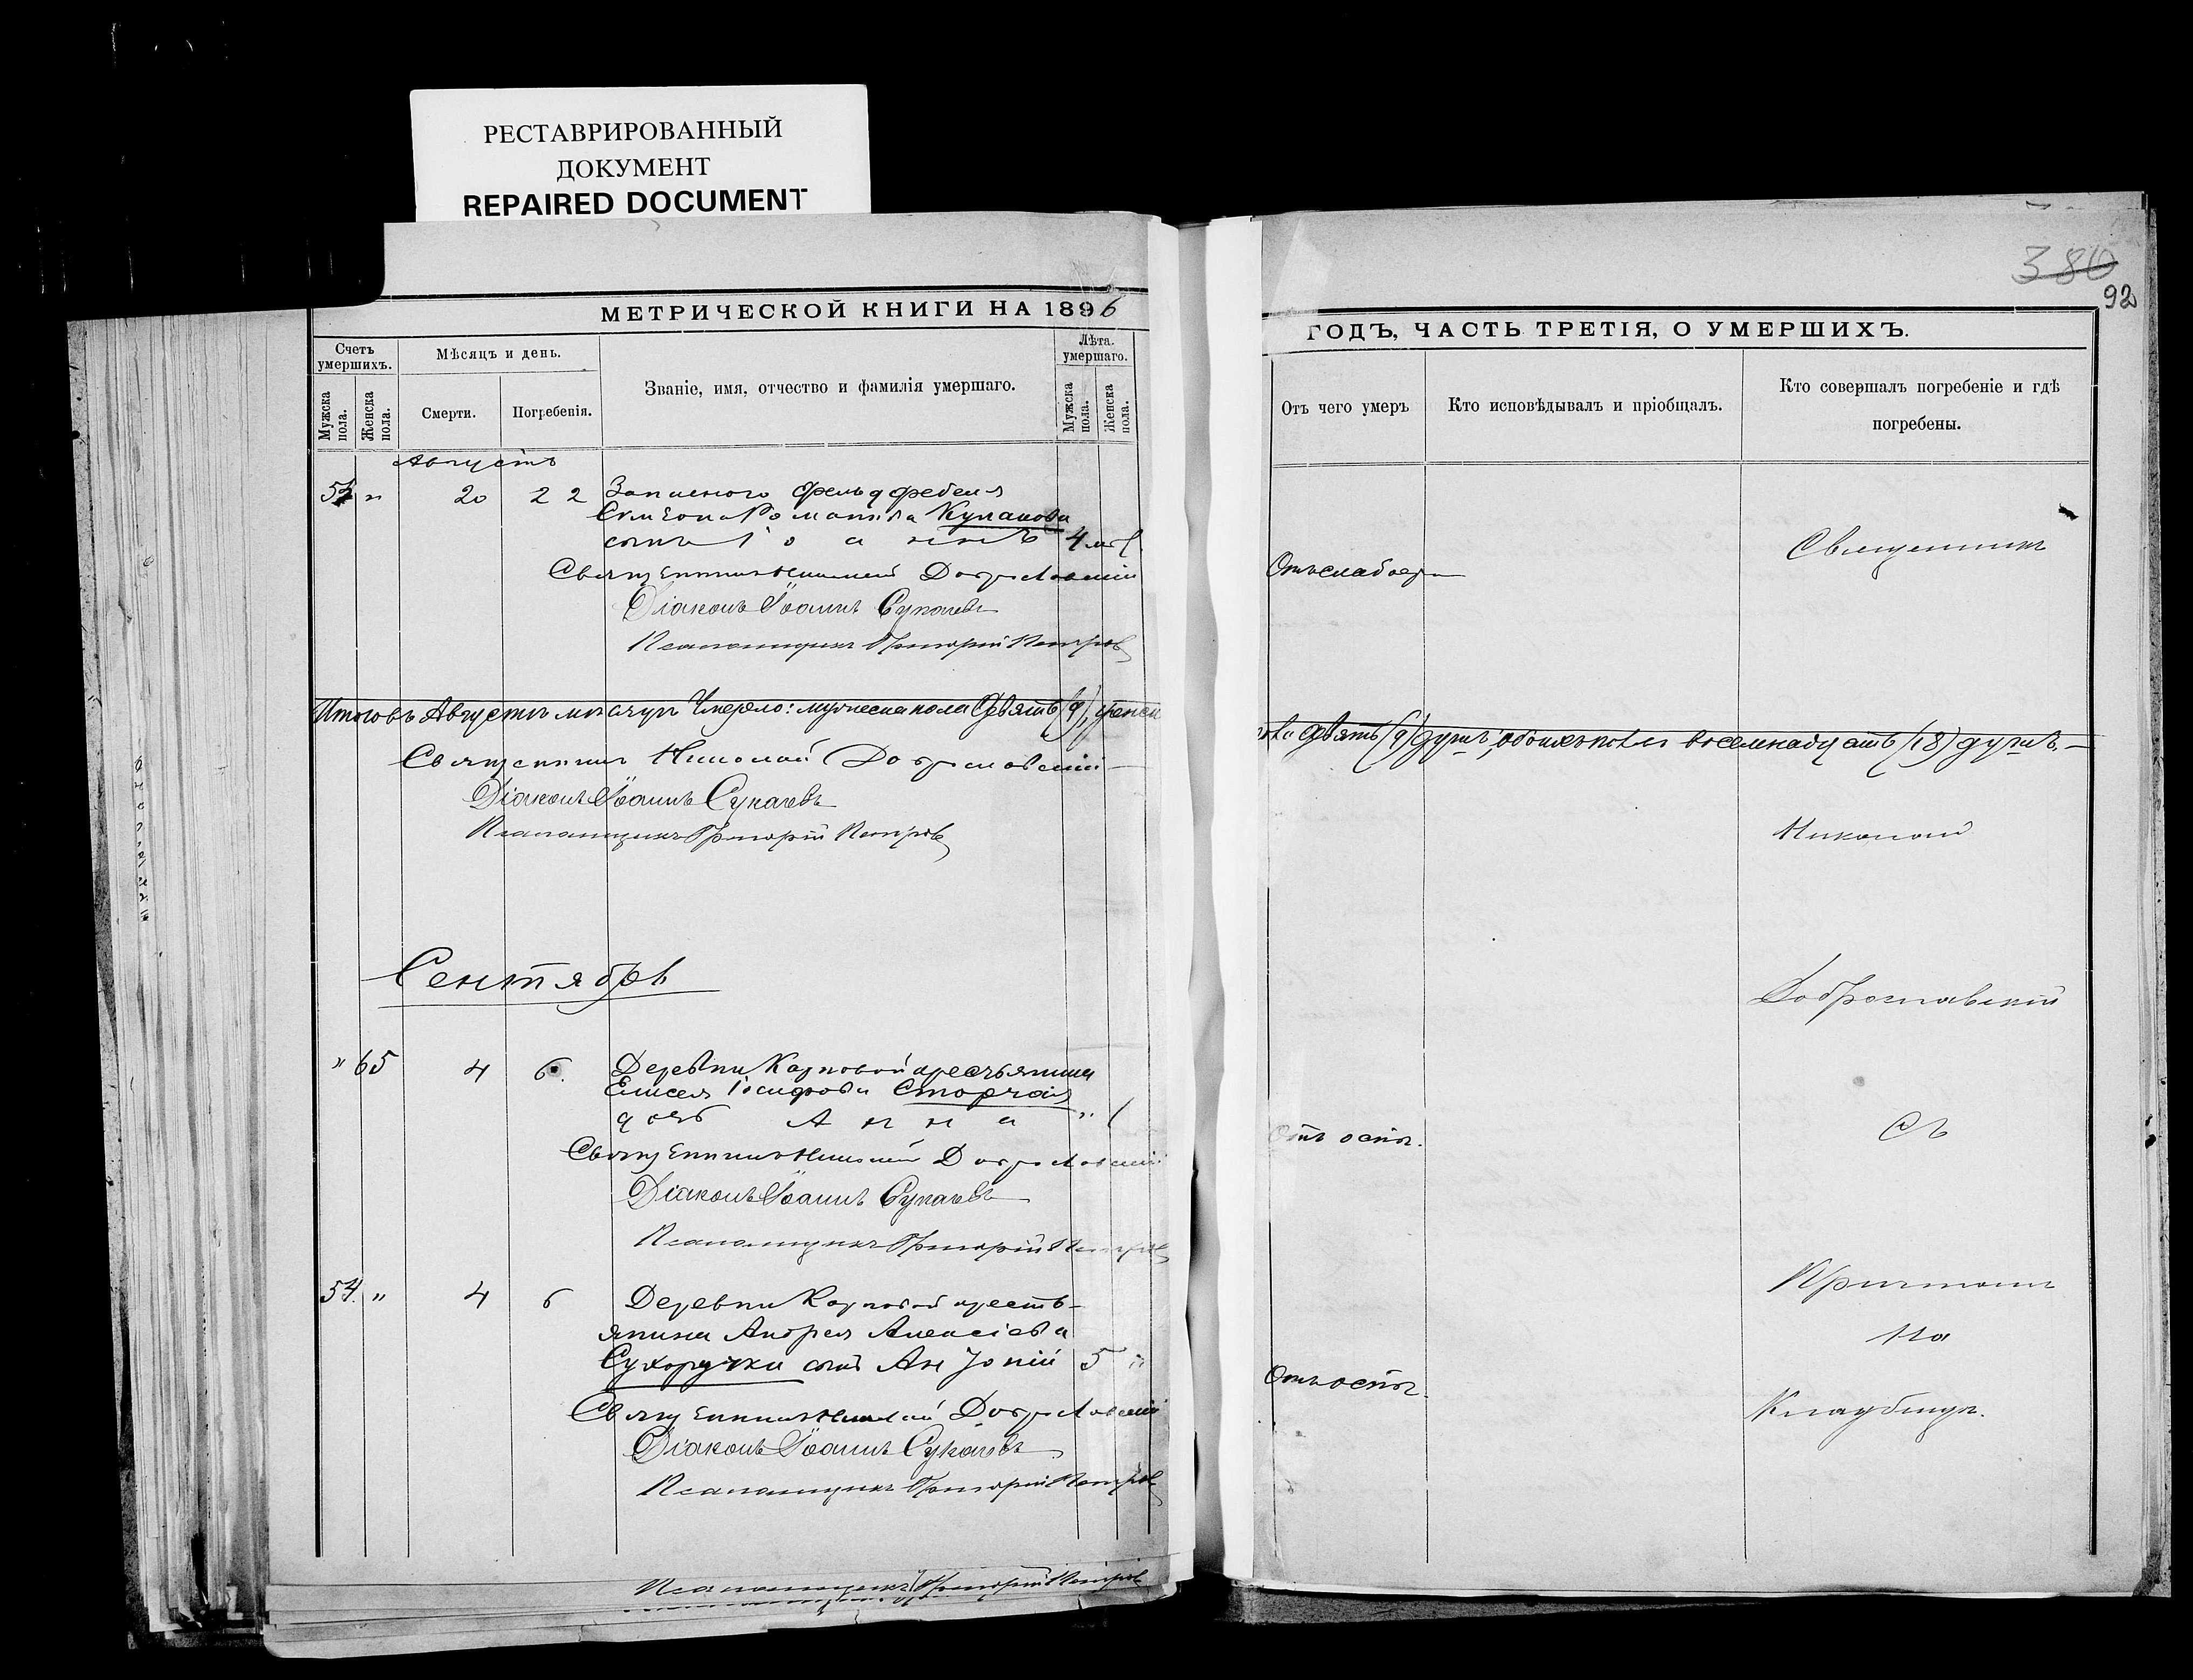 РЕСТАВРИРОВАННЫЙ
ДОКУМЕНТ
REPAIRED DOCUMENT
МЕТРИЧЕСКОЙ КНИГИ НА 1896
Счетъ умершихъ.
Мѣсяцъ и день.
Званіе, имя, отчество и фамилія умершаго.
Лѣта. умершаго.
Мужска пола.
Женска пола.
Смерти.
Погребенія.
Мужска пола.
Женска пола.
Августъ
53 " 20 22 Запаснаго фельдфебеля
Симеона Романова Кулакова
сынъ Іоаннъ 4 м
Священникъ Николай Доброславскій
Діаконъ Іоаннъ Сукачевъ
Псаломщикъ Григорій Петровъ
Итого въ Августѣ мѣсяцѣ Умерло: мужеска пола Девять (9), женск
Священникъ Николай Доброславскій
Діаконъ Іоаннъ Сукачевъ
Псаломщикъ Григорій Петровъ
Сентябрь
" 65 4 6 Деревни Карповой крестьянина
Елисея Іосифова Сторчая
дочь Анна "
Священникъ Николай Доброславскій
Діаконъ Іоаннъ Сукачевъ
Псаломщикъ Григорій Петровъ
54. " 4 6 Деревни Карповой кресть-
янина Андрея Алексіева
Сухоручки сынъ Антоній 5 "
Священникъ Николай Доброславскій
Діаконъ Іоаннъ Сукачевъ
Псаломщикъ Григорій Петровъ
Псаломщикъ Григорій Петровъ
380
92
ГОДЪ, ЧАСТЬ ТРЕТІЯ, О УМЕРШИХЪ.
Отъ чего умеръ
Кто исповѣдывалъ и пріобщалъ.
Кто совершалъ погребеніе и гдѣ погребены.
Священникъ
Отъ слабости
пола Девять (9) душъ, обоего пола восемнадцать (18) душъ.
Николай
Доброславскій
Съ
Отъ оспы.
Причтомъ
На
Отъ оспы.
Кладбищѣ.